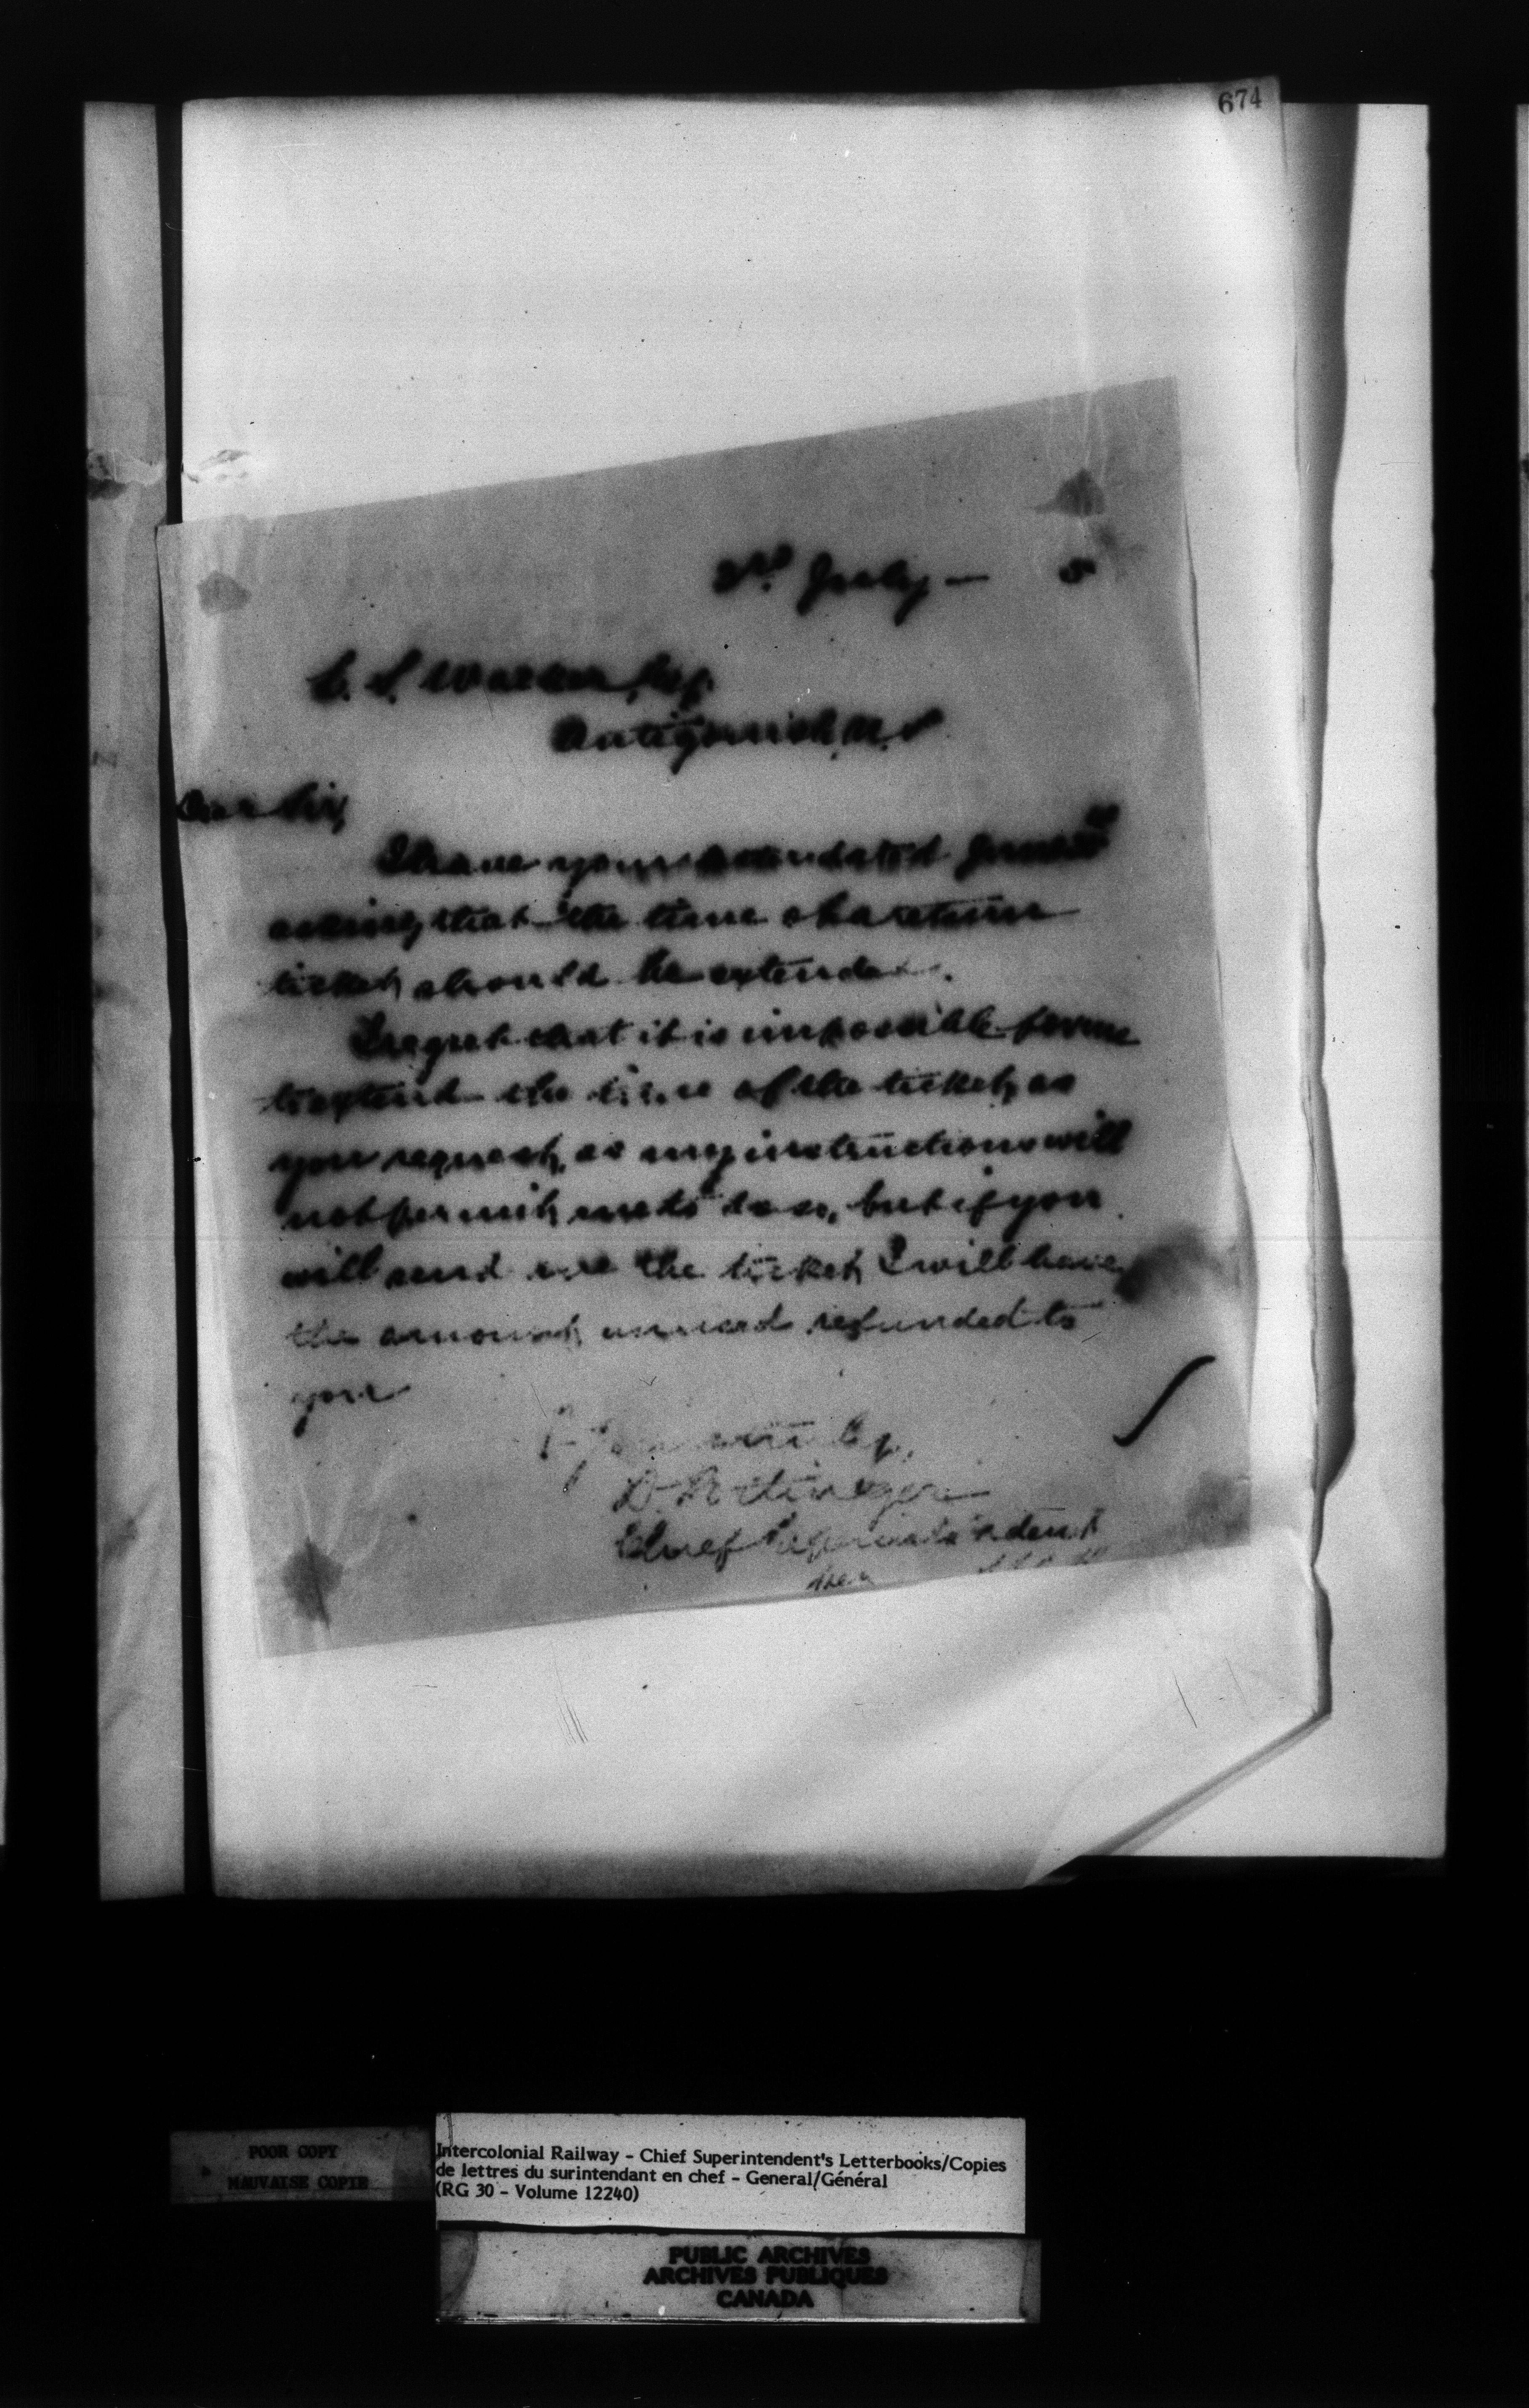 674
July — 5
C. S. Esq.
Antigonish, N.S
Dear Sir,
I have your undated June
asking that the time of a return
ticket should be extended.
I regret that it is impossible for me
to extend the time of the ticket, as
you request, as my instructions will
not permit me to do so, but if you
will send me the ticket I will have
the amount unused refunded to
you
Yours truly,
D. Pottinger
Chief Superintendent
POOR COPY
MAUVAISE COPIE
Intercolonial Railway - Chief Superintendent's Letterbooks/Copies
de lettres du surintendant en chef - General/Général
(RG 30 - Volume 12240)
PUBLIC ARCHIVES
ARCHIVES PUBLIQUES
CANADA